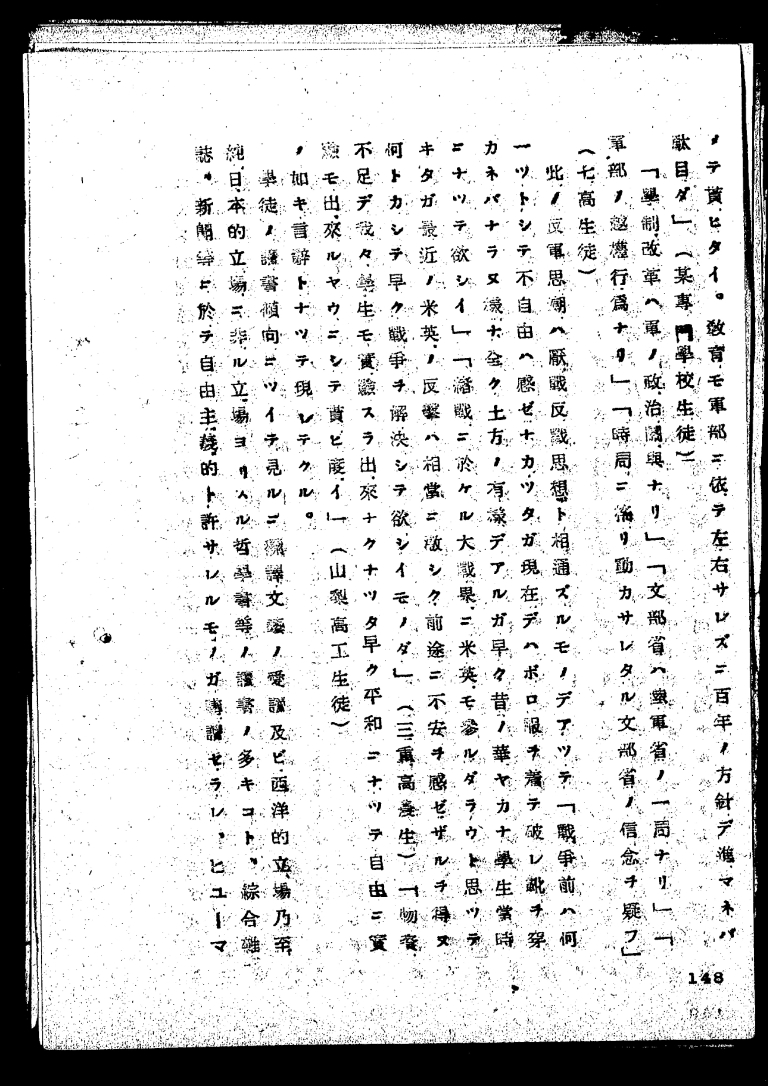 メテ貰ヒタイ。敎育モ軍部ニ依テ左右サレズニ百年ノ方針デ進マネバ
駄目ダ」（某專門學校生徒）
「學制改革ハ軍ノ政治關與ナリ」「文部省ハ陸軍省ノ一局ナリ」「
軍部ノ越權行爲ナリ」「時局ニ 動カサレタル文部省ノ信念ヲ疑フ」
（七高生徒）
此ノ反軍思潮ハ厭戰反戰思想ト相通ズルモノデアツテ「戰爭前ハ何
一ツトシテ不自由ハ感ゼナカツタガ現在デハボロ服ヲ着テ破レ靴ヲ穿
カネバナラヌ樣ナ全ク土方ノ有樣デアルガ早ク昔ノ華ヤカナ學生當時
ニナツテ欲シイ」「緖戰ニ於ケル大戰果ニ米英モ參ルダラウト思ツテ
キタガ最近ノ米英ノ反擊ハ相當ニ激シク前途ニ不安ヲ感ゼザルヲ得ヌ
何トカシテ早ク戰爭ヲ解決シテ欲シイモノダ」（三重高農生）「物資
不足デ我々學生モ實驗スラ出來ナクナツタ早ク平和ニナツテ自由ニ實
驗モ出來ルヤウニシテ貰ヒ度イ」（山梨高工生徒）
ノ如キ言辭トナツテ現レテクル。
學徒ノ讀書傾向ニツイテ見ルニ飜譯文藝ノ愛讀及ビ西洋的立場乃至
純日本的立場ニ非ル立場ヨリスル哲學書等ノ讀書ノ多キコト、綜合雜
誌、新聞等ニ於テ自由主義的ト許サレルモノガ 讀セラレ、ヒユーマ
148